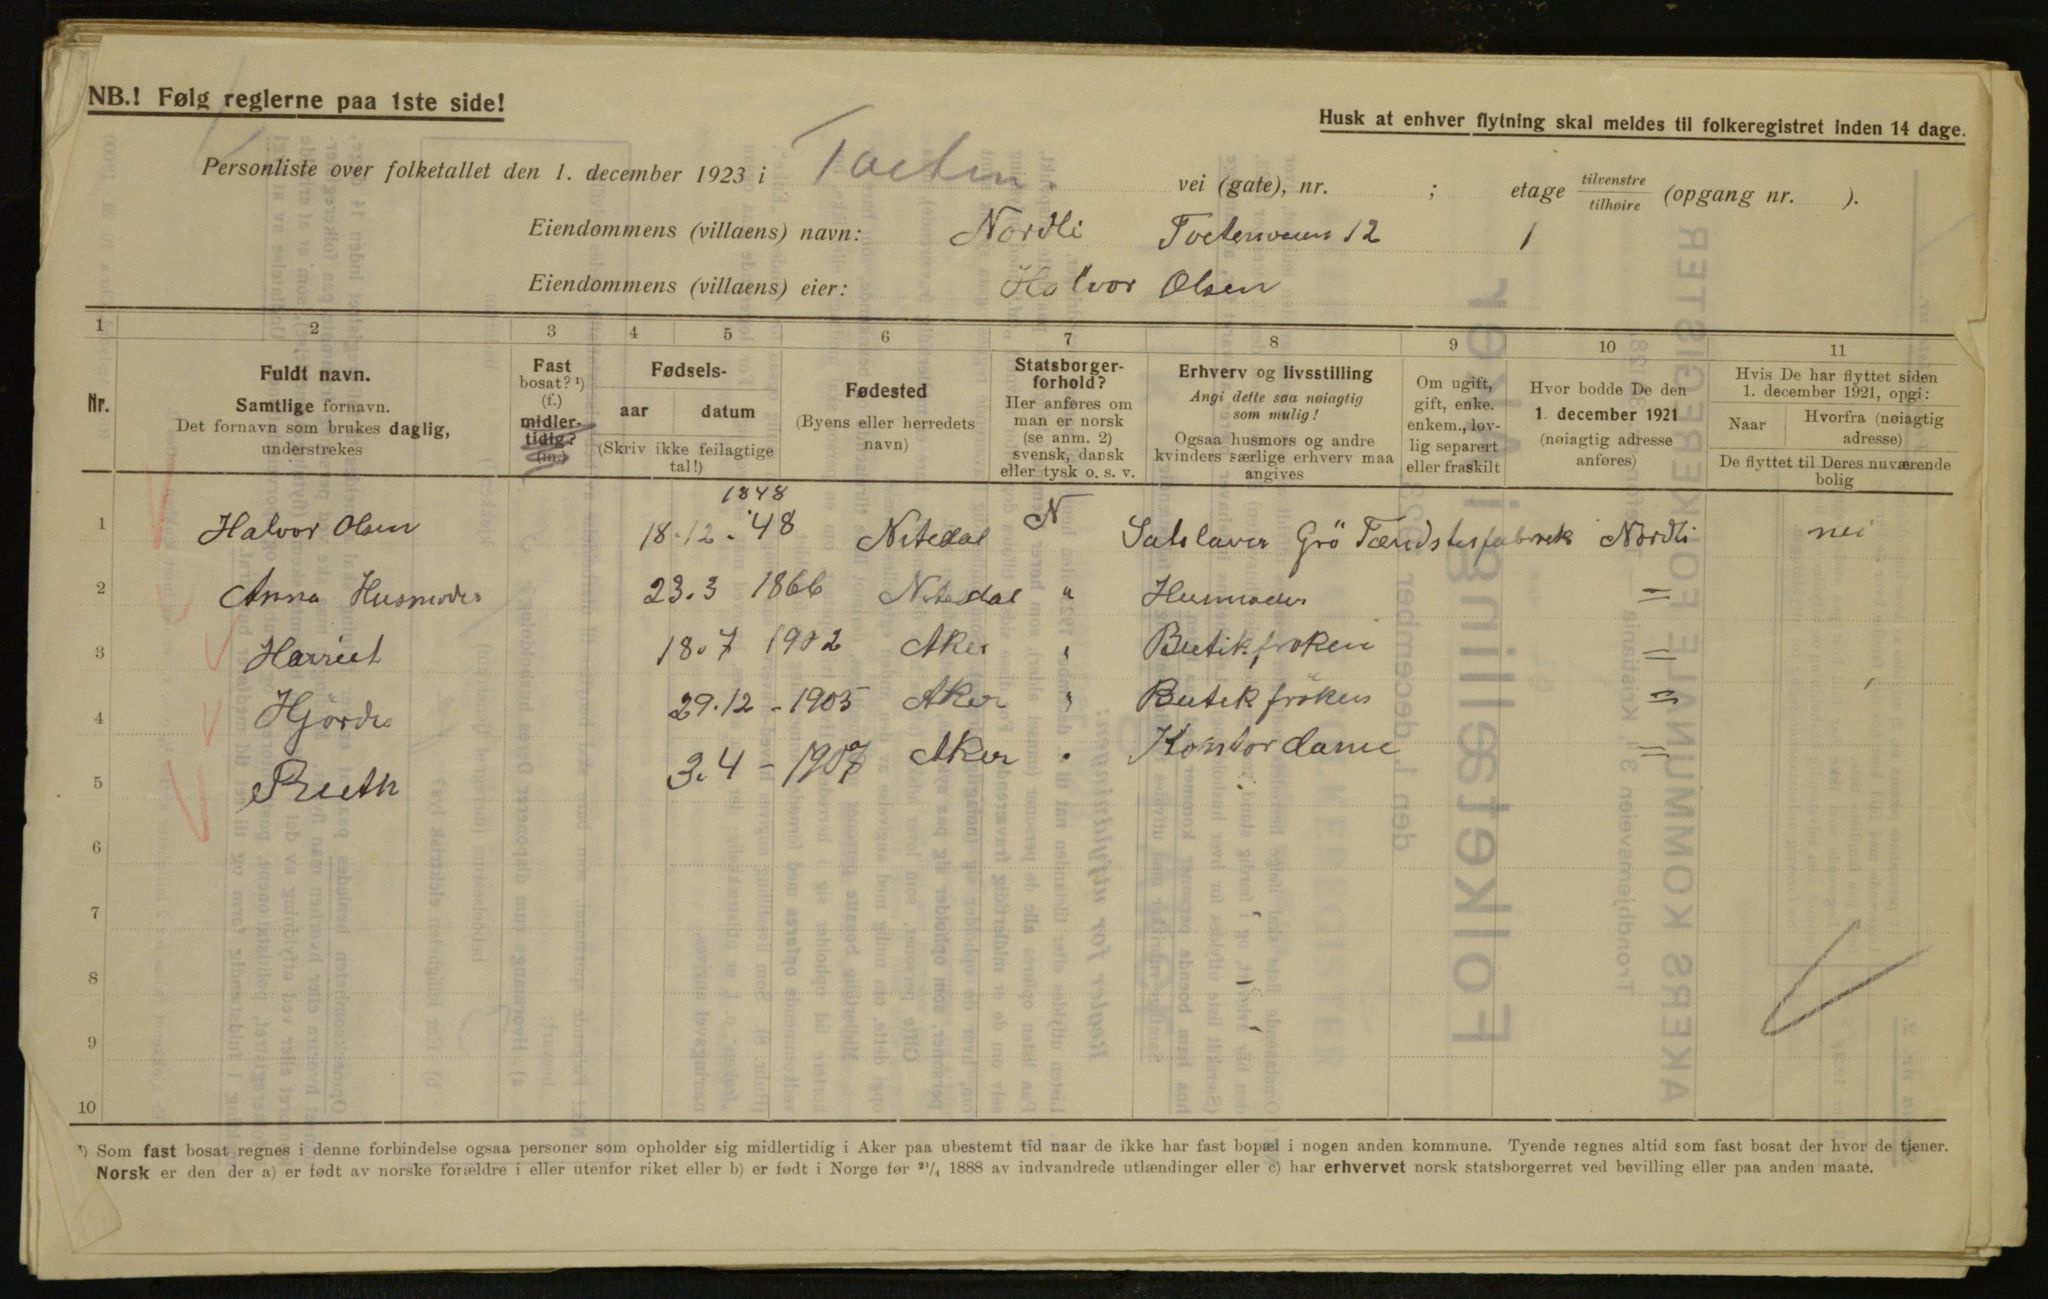 NB.! Følg reglerne paa 1ste side!
Husk at enhver flytning skal meldes til folkeregistret inden 14 dage.
Personliste over folketallet den 1. december 1923 i Toeten. vei (gate), nr. ; etage tilvenstre tilhøire (opgang nr. ).
Eiendommens (villaens) navn: Nordli Toetenveien 12 1
Eiendommens (villaens) eier: Halvor Olsen
1 2 3 4 5 6 7 8 9 10 11
Nr.
Fuldt navn.
Samtlige fornavn.
Det fornavn som brukes daglig,
understrekes
Fast
bosat? ¹)
(f.)
midler-
tidig?
(m.)
Fødsels-
aar datum
(Skriv ikke feilagtige
tal!)
Fødested
(Byens eller herredets
navn)
Statsborger-
forhold?
Her anføres om
man er norsk
(se anm. 2)
svensk, dansk
eller tysk o. s. v.
Erhverv og livsstilling
Angi dette saa nøiagtig
som mulig!
Ogsaa husmors og andre
kvinders særlige erhverv maa
angives
Om ugift,
gift, enke.
enkem., lov-
lig separert
eller fraskilt
Hvor bodde De den
1. december 1921
(nøiagtig adresse
anføres)
Hvis De har flyttet siden
1. december 1921, opgi:
Naar
Hvorfra (nøiagtig
adresse)
De flyttet til Deres nuværende
bolig
1848
1 Halvor Olsen 18.12. 48 Nitedal N Grö Tændstesfabrek Nordli nei
2 Anna Husmoder 23.3 1866 Nitedal " Husmoder =
3 Harriet 18.7 1902 Aker " Butikfroken =
4 Hjördis 29.12 - 1905 Aker " Butekfröken =
5 Ruth 3.4 - 1907 Aker " Kontordame =
6
7
8
9
10
¹) Som fast bosat regnes i denne forbindelse ogsaa personer som opholder sig midlertidig i Aker paa ubestemt tid naar de ikke har fast bopæl i nogen anden kommune. Tyende regnes altid som fast bosat der hvor de tjener.
Norsk er den der a) er født av norske forældre i eller utenfor riket eller b) er født i Norge før ²¹/₄ 1888 av indvandrede utlændinger eller c) har erhvervet norsk statsborgerret ved bevilling eller paa anden maate.